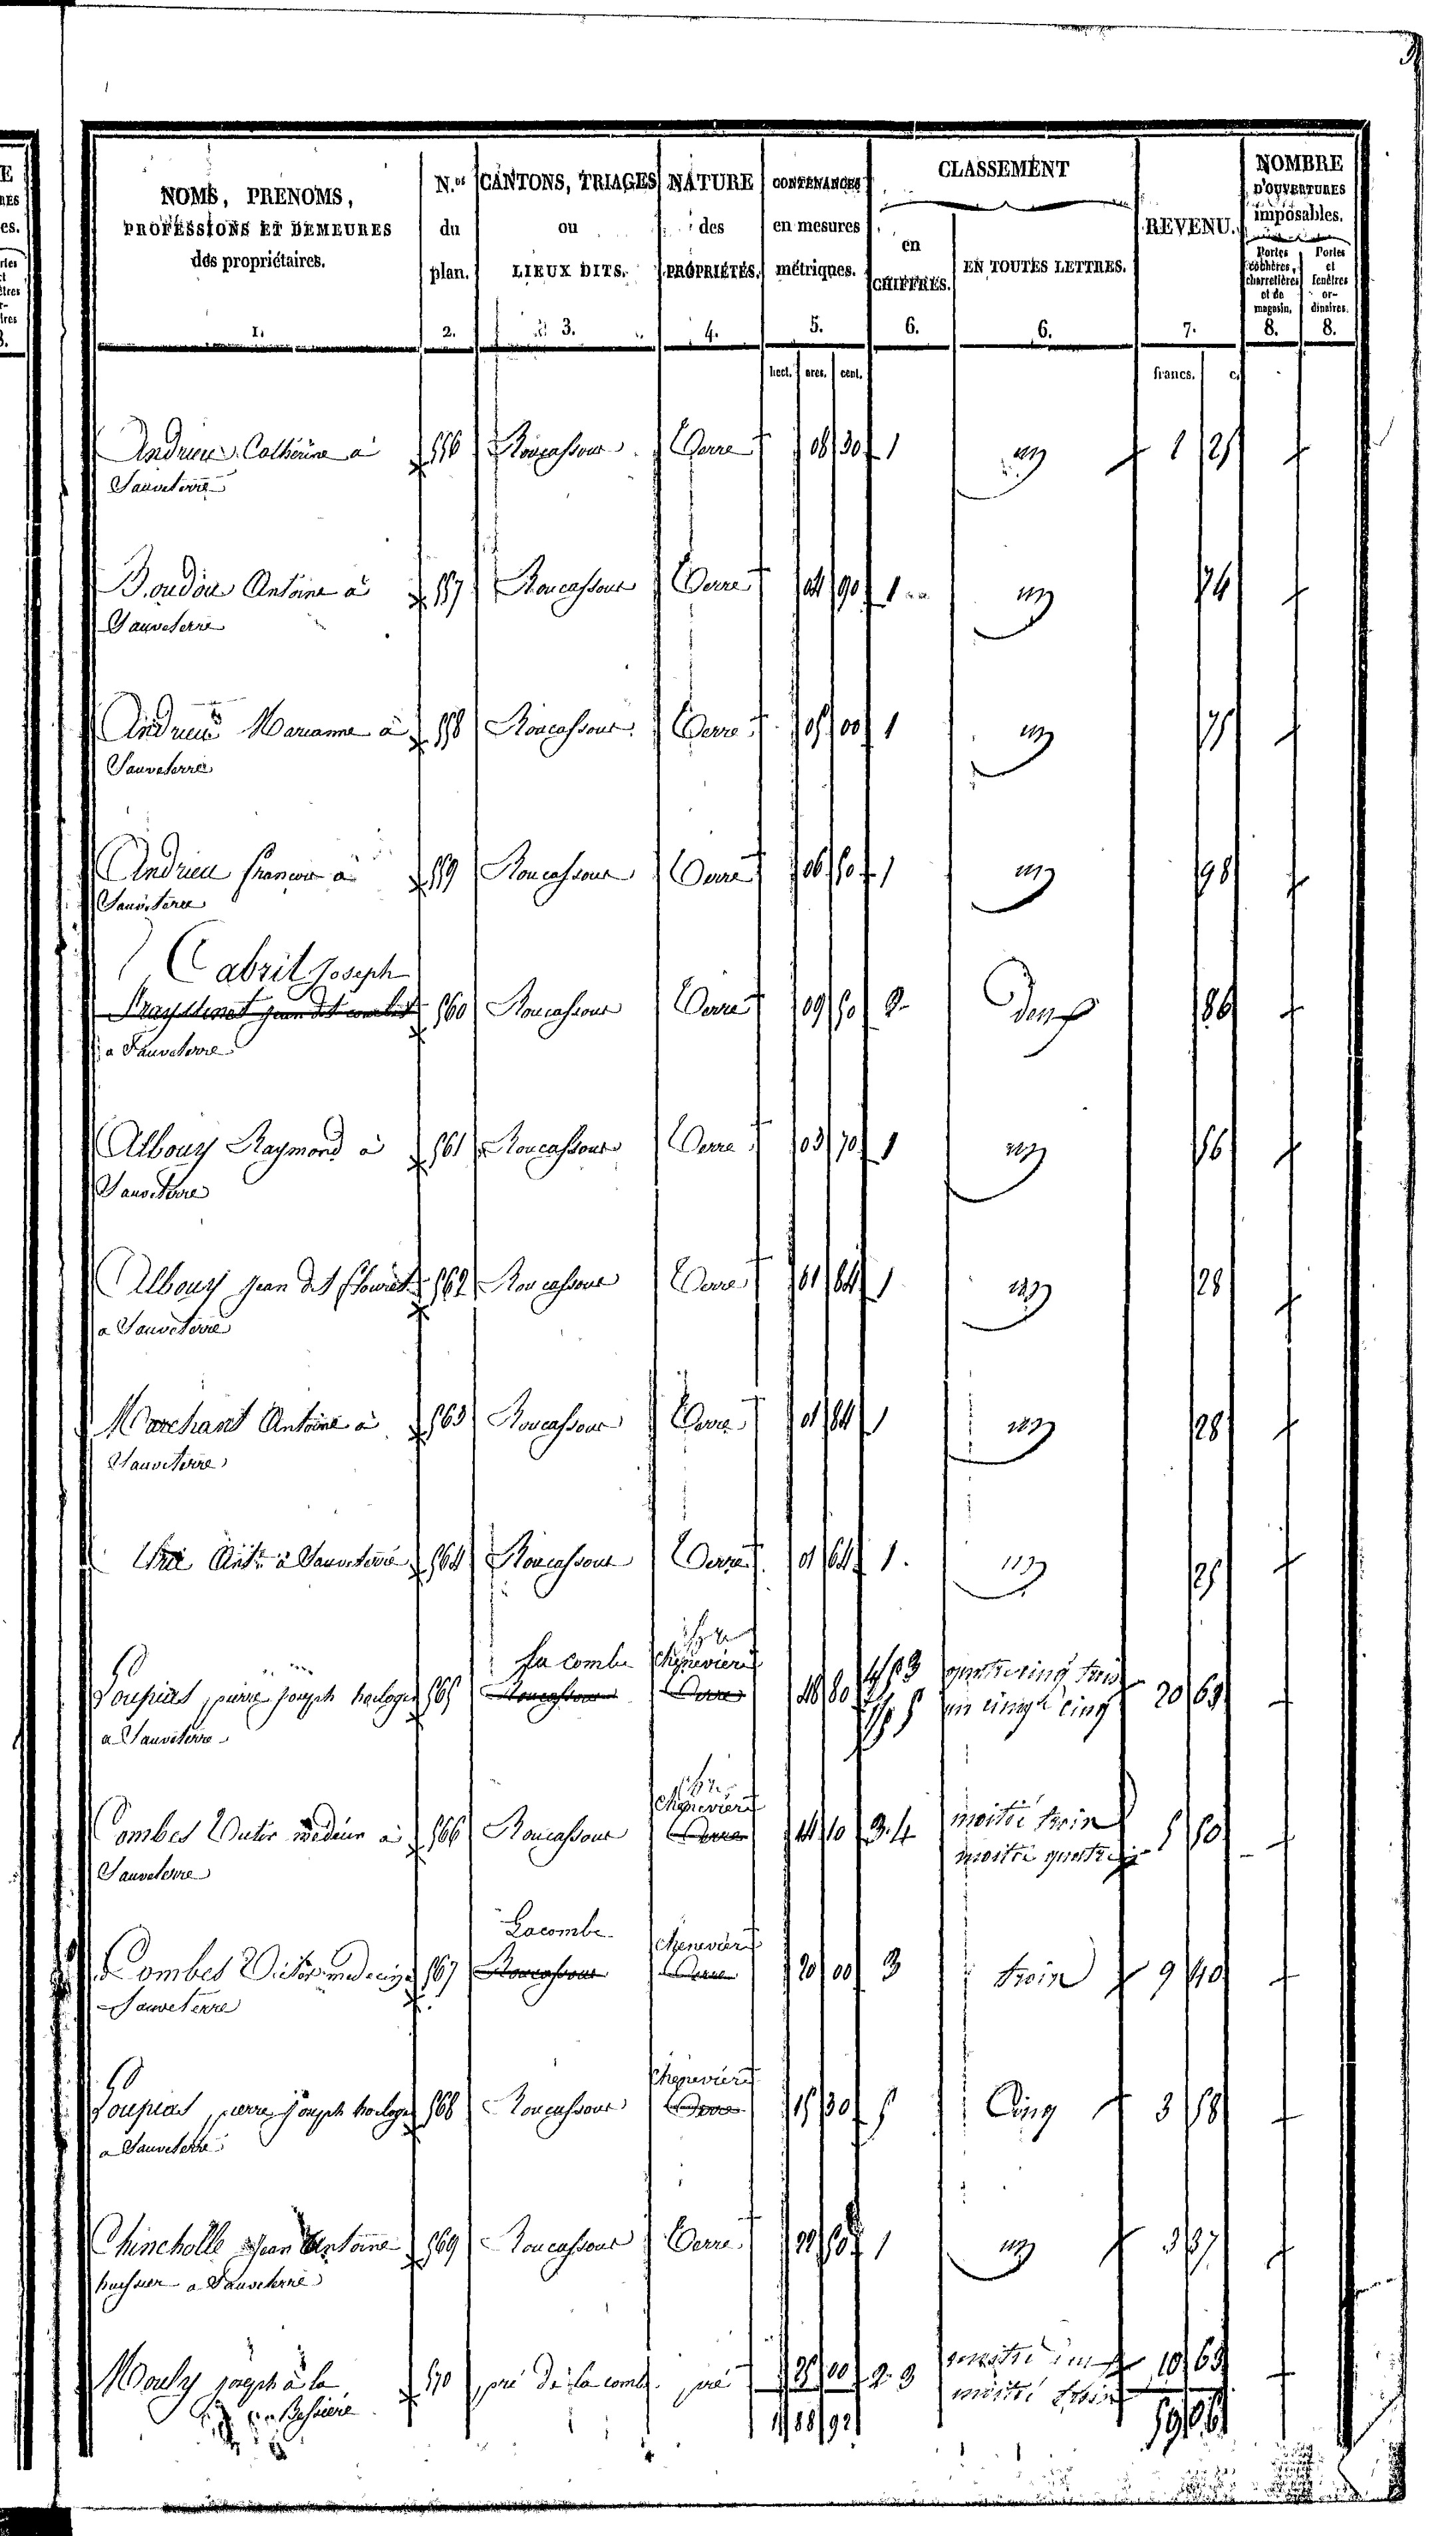 NOMS, PRENOMS,
PROFESSIONS ET DEMEURES
des propriétaires.
1.
N.os
du
plan.
2.
CANTONS, TRIAGES
ou
LIEUX DITS.
3.
NATURE
des
PROPRIÉTÉS.
4.
CONTENANCES
en mesures
métriques.
5.
CLASSEMENT
en
CHIFFRES.
6.
EN TOUTES LETTRES.
6.
REVENU.
7.
NOMBRE
D'OUVERTURES
imposables.
Portes cochères, charretières et de magasin.
8.
Portes et fenêtres ordinaires.
8.
hect. ares. cent. francs. c.
Andrieu Catherine à 556 Roucassous Terre 08 30 1 un 1 25
Sauveterre
Boudou Antoine à 557 Roucassous Terre 04 90 1 un 74
Sauveterre
Andrieu Marianne à 558 Roucassous Terre 05 00 1 un 75
Sauveterre
Andrieu françois à 559 Roucassous Terre 06 50 1 un 98
Sauveterre
Cabrit Joseph
Frayssinet jean dit 560 Roucassous Terre 09 50 2 deux 86
a Sauveterre
Albouy Raymond à 561 Roucassous Terre 03 70 1 un 56
Sauveterre
Albouy jean dit 562 Roucassous Terre 01 84 1 un 28
a Sauveterre
Marchant Antoine à 563 Roucassous Terre 01 84 1 un 28
Sauveterre
à Sauveterre 564 Roucassous Terre 01 64 1 un 25
La combe Cheneviere quatre cinq trois
Loupias pierre joseph horloger 565 Roucassous Terre 48 80 un cinq cinq 20 63
a Sauveterre
Cheneviere moitié trois
Combes Victor médecin à 566 Roucassous Terre 44 10 3.4 moitié quatre 5 50
Sauveterre
Lacombe Cheneviere
Combes Victor medecin 567 Roucassous Terre 20 00 3 trois 9 40
Sauveterre
Cheneviere
Loupias pierre joseph horloger 568 Roucassous Terre 15 30 5 Cinq 3 58
a Sauveterre
Chincholle Jean Antoine 569 Roucassous Terre 22 50 1 un 3 37
huissier a Sauveterre
moitié
Mouly joseph à la 570 pré de la combe pré 25 00 2 3 moitié trois 10 63
Bessiere
1 88 92